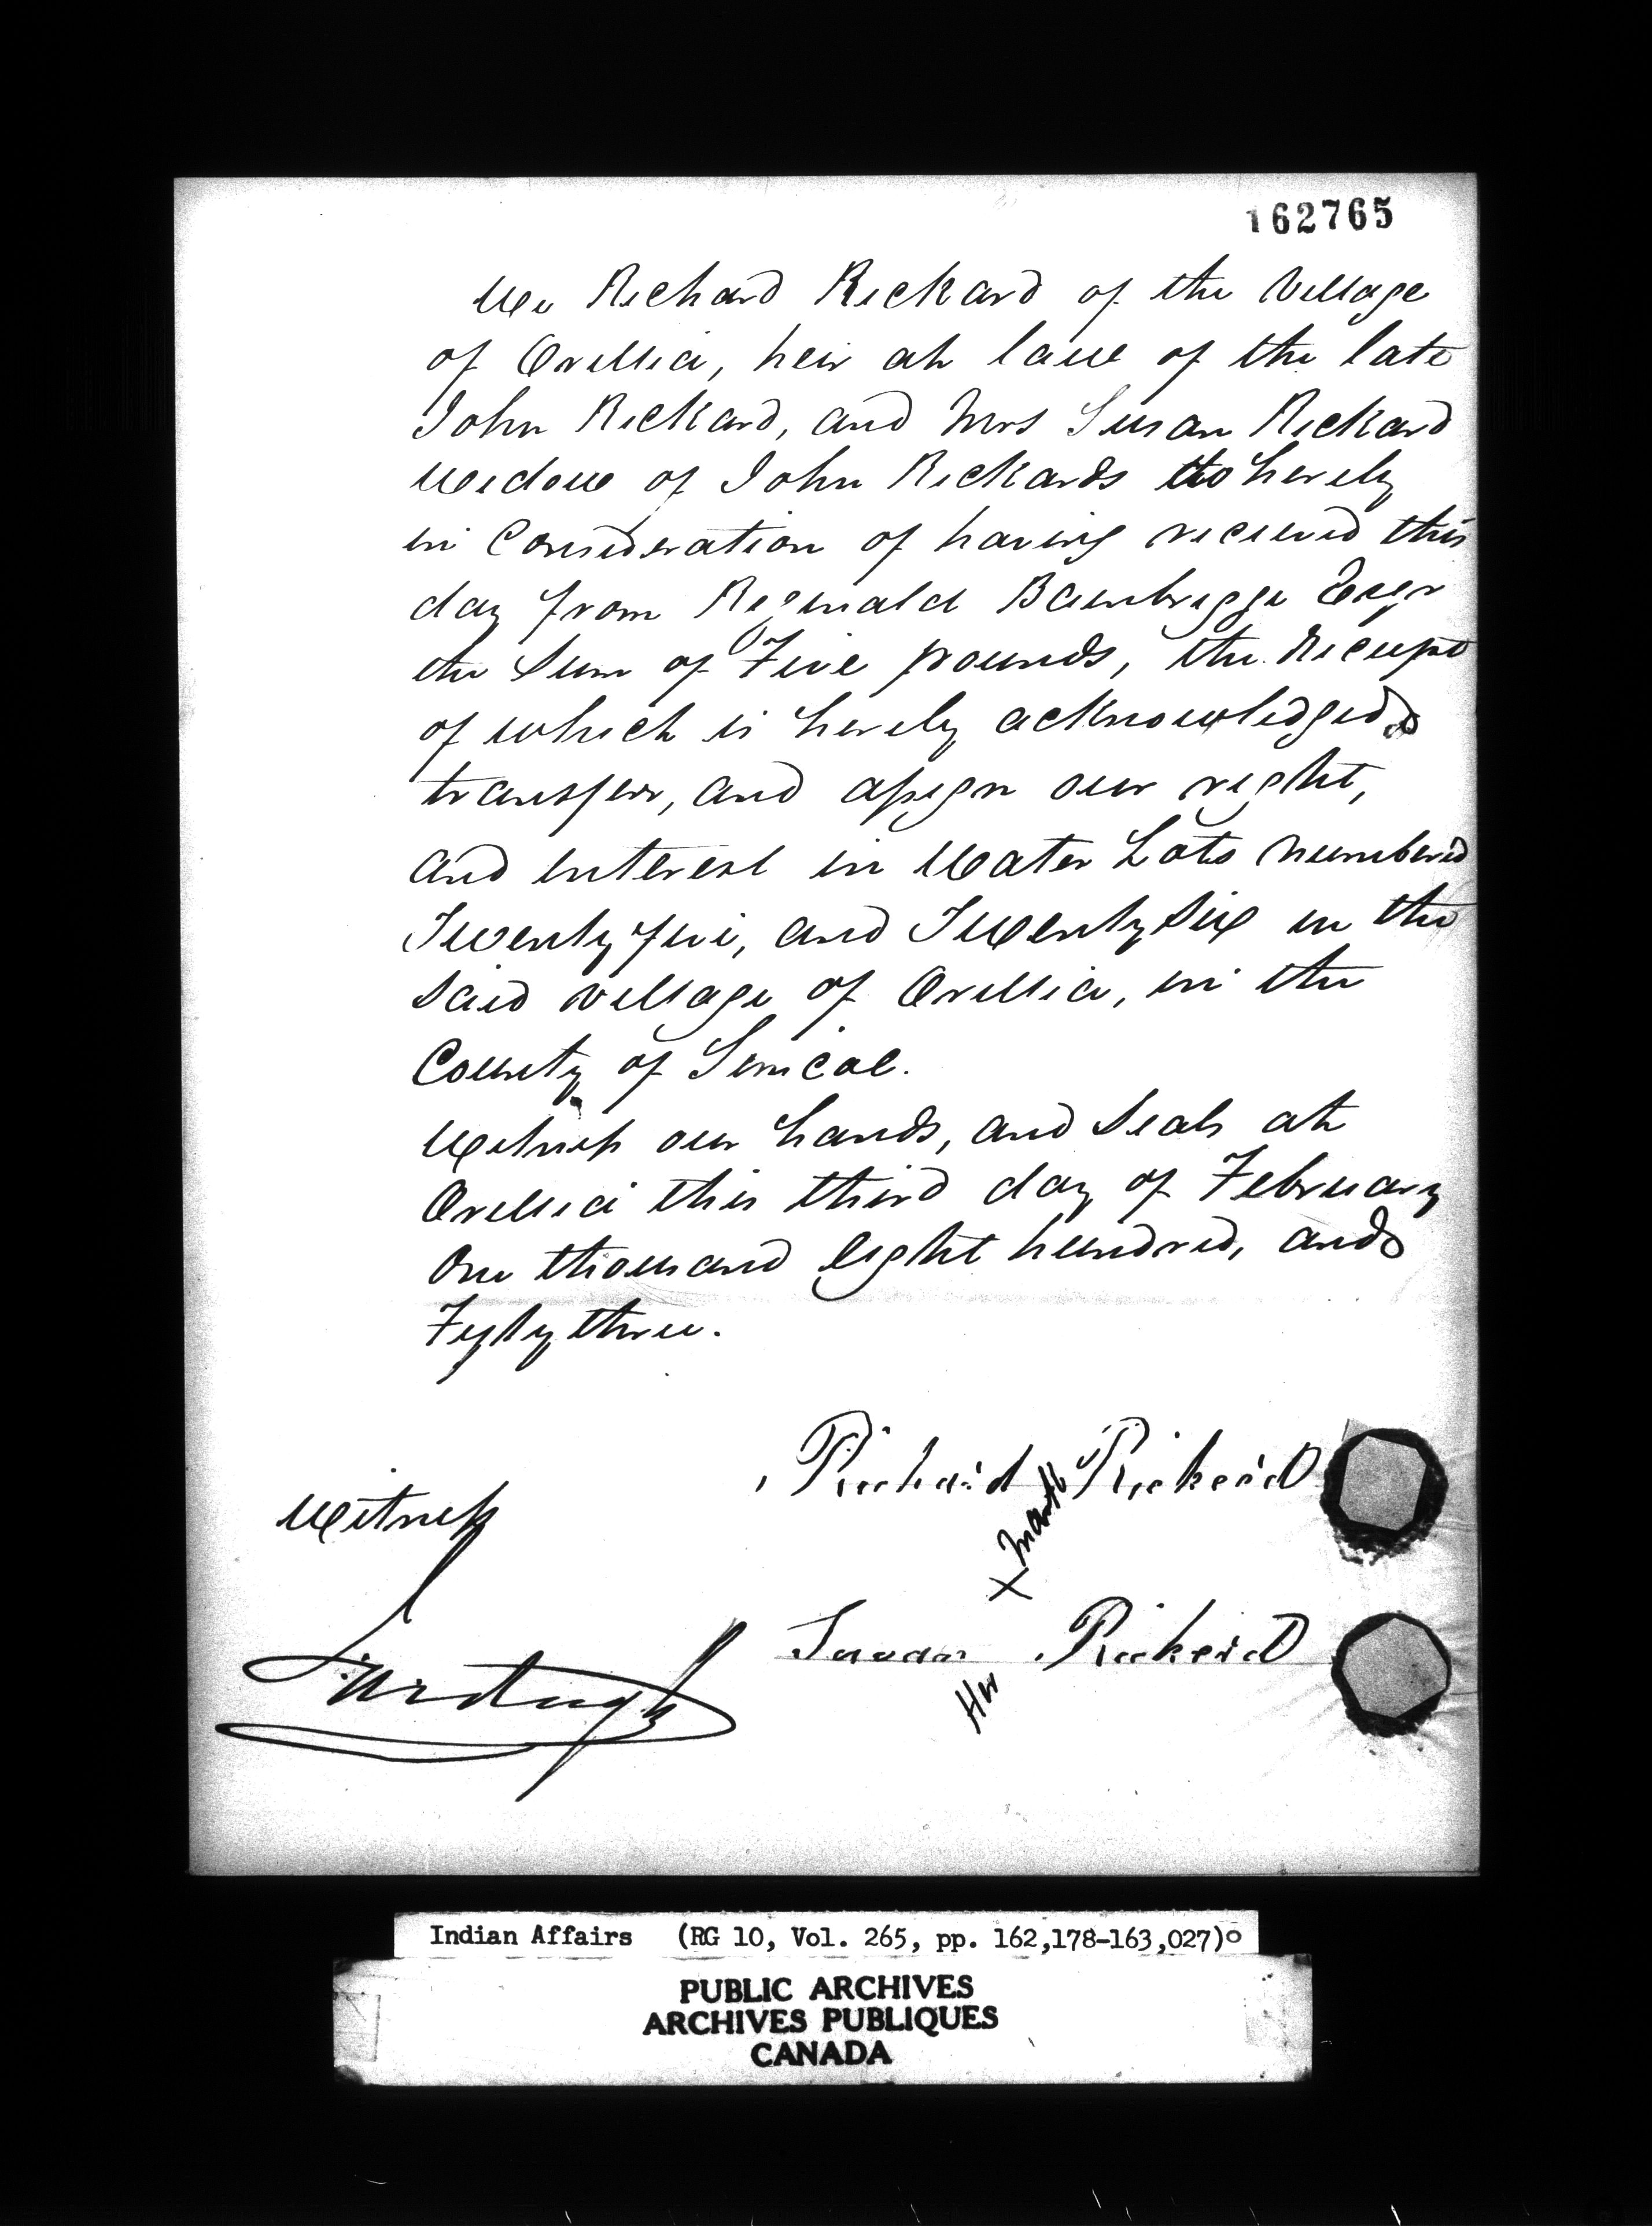 162765
We Richard Rickard of the Village
of Orillia, heir at law of the late
John Rickard, and Mrs Susan Rickard
Widow of John Rickards do hereby
in Consideration of having received this
day from Reginald Bainbrigge Esqr
the Sum of Five pounds, the Receipt
of which is hereby acknowledged
transferr, and assign our right,
and interest in Water Lots numbered
Twenty five, and Twenty Six in the
Said Village of Orillia, in the
County of Simcoe.
Witness our hands, and Seals at
Orillia this third day of February
One thousand eight hundred, and
Fifty three.
Richard Rickard
Witness
X mark
Susan Rickerd
Her
Indian Affairs (RG 10, Vol. 265, pp. 162,178-163,027)
PUBLIC ARCHIVES
ARCHIVES PUBLIQUES
CANADA